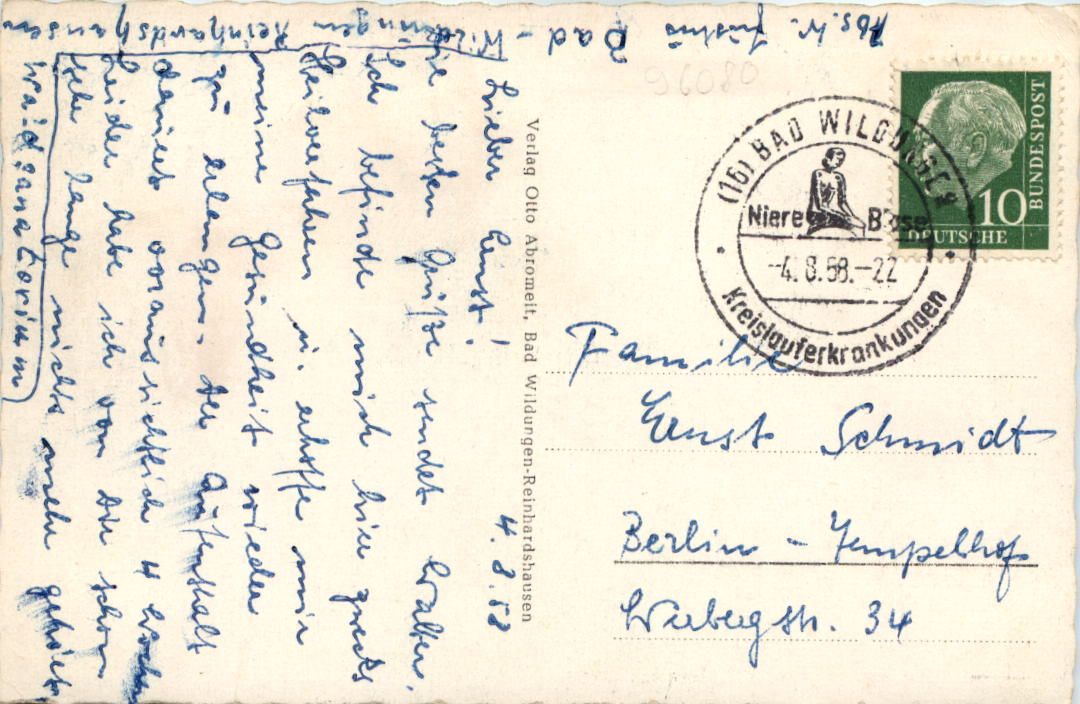 Lieber Ernst! 4.8.58
Die besten Grüße sendet Walter.
Ich befinde mich hier zwecks
Heilverfahren u. erhoffe mir
meine Gesundheit wieder
zu erlangen. Der Aufenthalt
dauert voraussichtlich 4 Wochen
Leider habe ich von Dir schon
sehr lange nichts mehr gehört.
Waldsanatorium
Reinhardshausen
Bad - Wildungen
Abs. W.
Verlag Otto Abromeit, Bad Wildungen-Reinhardshausen
96080
(16) BAD WILDUNGEN
Niere Blase
-4.8.58.-22
Kreislauferkrankungen
10
DEUTSCHE
BUNDESPOST
Familie
Ernst Schmidt
Berlin - Tempelhof
Wiebergstr. 34